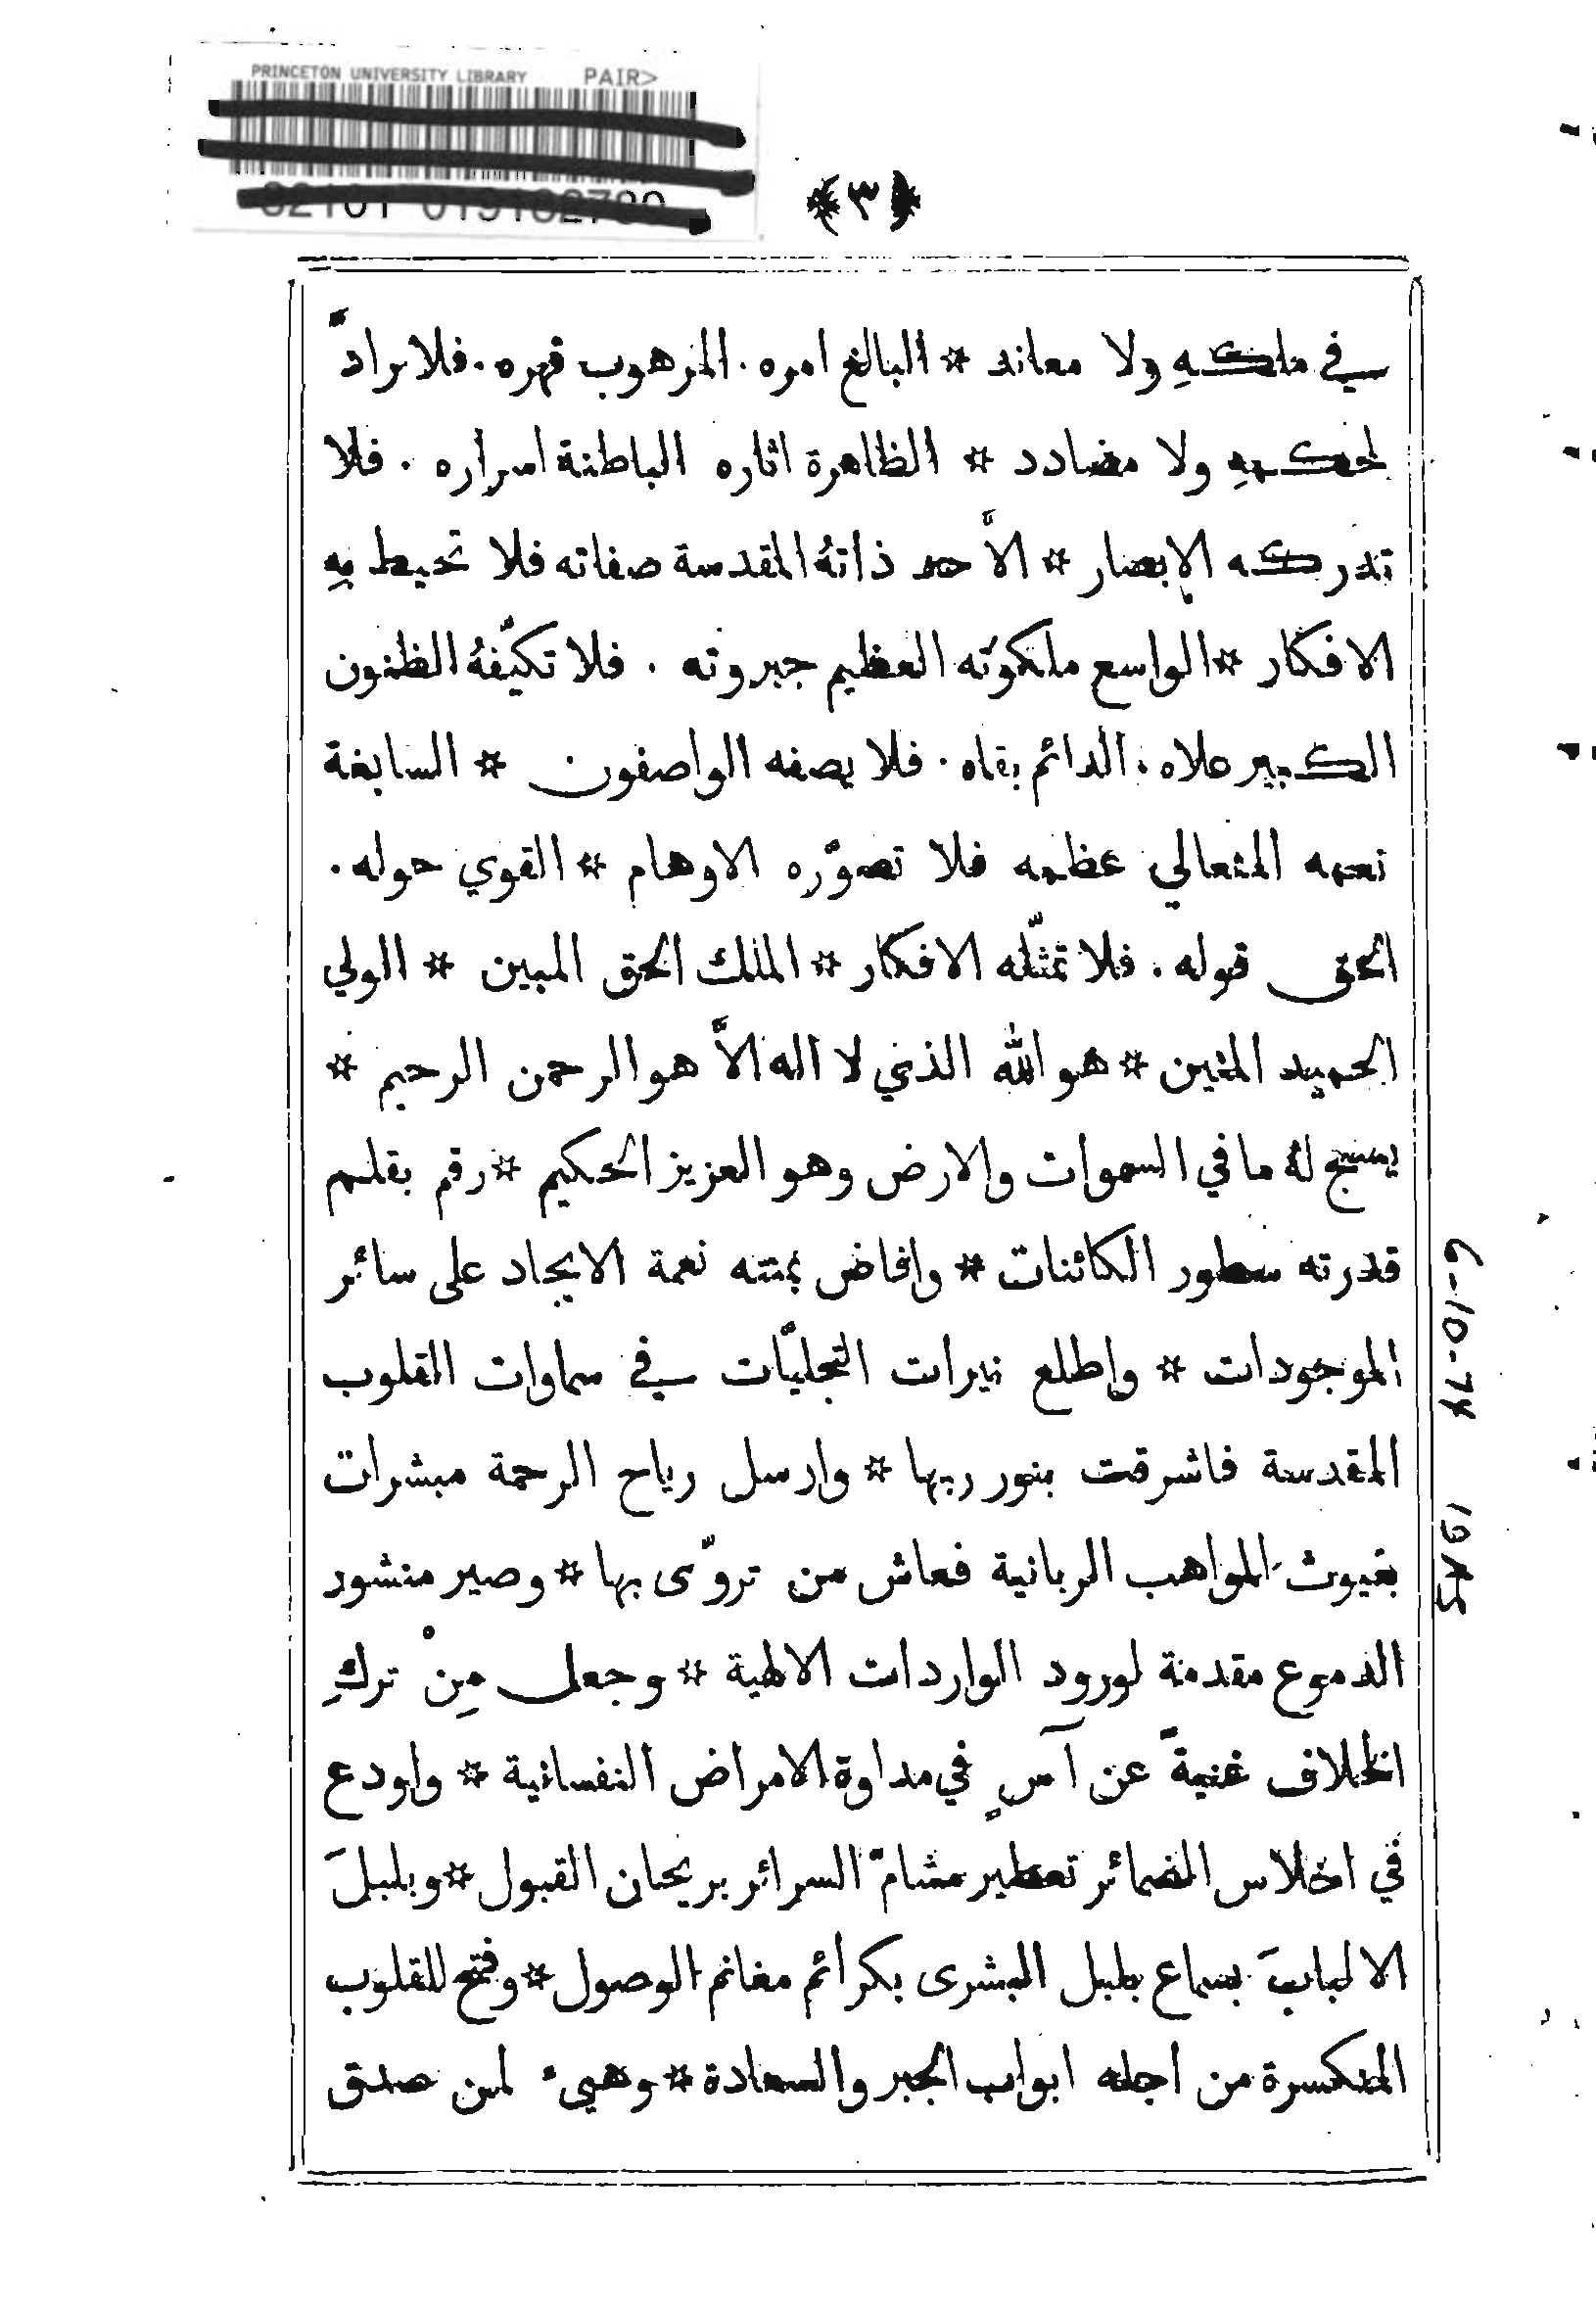 PRINCETON UNIVERSITY LIBRARY PAIR>
﴿٣﴾
في ملكهِ ولا معاند * البالغ امره. المرهوب قهره. فلا رادَّ
لحكمهِ ولا مضادد * الظاهرة اثاره الباطنة اسراره. فلا
تدركه الابصار * الأَّحد ذاتهُ المقدسة صفاته فلا تحيط بهِ
الافكار * الواسع ملكوته العظيم جبروته. فلا تكيّفهُ الظنون
الكبير علاه. الدائم بقاه. فلا يصفه الواصفون * السابغة
نعمه المتعالي عظمه فلا تصوّره الاوهام * القوي حوله.
الحق قوله. فلا تمثّله الافكار * الملك الحق المبين * الولي
الحميد المتين * هو الله الذي لا اله الاَّ هو الرحمن الرحيم *
يسبح لهُ ما في السموات والارض وهو العزيز الحكيم * رقم بقلم
قدرته سطور الكائنات * وافاض بمنته نعمة الايجاد على سائر
الموجودات * واطلع نيرات التجليّات في سماوات القلوب
المقدسة فاشرقت بنور ربها * وارسل رياح الرحمة مبشرات
بغيوث المواهب الربانية فعاش من تروّى بها * وصير منشود
الدموع مقدمة لورود الواردات الالهية * وجعل مِنْ تركِ
الخلاف غنيةً عن آسٍ في مداوة الامراض النفسانية * واودع
في اخلاس الضمائر تعطير مشامّ السرائر بريحان القبول * وبلبلَ
الالبابَ بسماع بلبل البشرى بكرائم مغانم الوصول * وفتح للقلوب
المنكسرة من اجله ابواب الجبر والسعادة * وهيئ لمن صدق
6-10-74